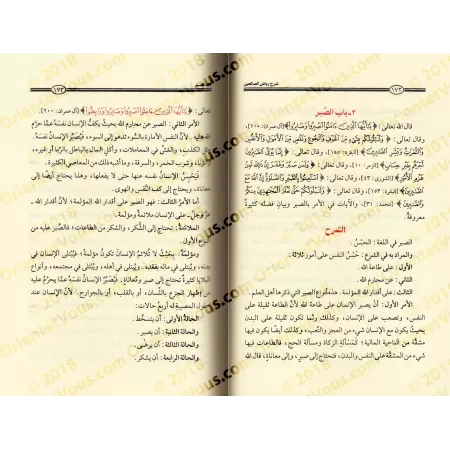 شرح رياض الصالحين
١٧٢
٣- باب الصَّبر
قال الله تعالى: ﴿يَا أَيُّهَا الَّذِينَ ءَامَنُوا اصْبِرُوا وَصَابِرُوا﴾ [آل عمران: ٢٠٠]،
وقال تعالى: ﴿وَلَنَبْلُوَنَّكُم بِشَيْءٍ مِّنَ الْخَوْفِ وَالْجُوعِ وَنَقْصٍ مِّنَ الْأَمْوَالِ وَالْأَنفُسِ
وَالثَّمَرَاتِ وَبَشِّرِ الصَّابِرِينَ﴾ [البقرة: ١٥٥]، وقال تعالى: ﴿إِنَّمَا يُوَفَّى الصَّابِرُونَ
أَجْرَهُم بِغَيْرِ حِسَابٍ﴾ [الزمر: ١٠]، وقال تعالى: ﴿وَلَمَن صَبَرَ وَغَفَرَ إِنَّ ذَلِكَ لَمِنْ
عَزْمِ الْأُمُورِ﴾ [الشورى: ٤٣]، وقال تعالى: ﴿اسْتَعِينُوا بِالصَّبْرِ وَالصَّلَاةِ إِنَّ اللَّهَ مَعَ
الصَّابِرِينَ﴾ [البقرة: ١٥٣]، وقال تعالى: ﴿وَلَنَبْلُوَنَّكُمْ حَتَّى نَعْلَمَ الْمُجَاهِدِينَ مِنكُمْ
وَالصَّابِرِينَ﴾ [محمد: ٣١]، والآيات في الأمر بالصبر وبيان فضله كثيرةٌ
معروفةٌ.
الشرح
الصبر في اللغة: الحَبْسُ.
والمراد به في الشرع: حَبْسُ النفس على أمور ثلاثة:
الأول: على طاعة الله.
الثاني: عن محارم الله.
الثالث: على أقدار الله المؤلمة. هذه أنواع الصبر التي ذكرها أهل العلم.
الأمر الأول: أن يصبر الإنسان على طاعة الله لأنَّ الطاعة ثقيلة على
النفس، وتصعب على الإنسان، وكذلك ربَّما تكون ثقيلة على البدن
بحيث يكون مع الإنسان شيء من العجز والتَّعب، وكذلك أيضًا يكون فيها
مشقَّة من الناحية المالية؛ كمسألة الزكاة ومسألة الحج، فالطاعات فيها
شيء من المشقَّة على النفس والبدن، فتحتاج إلى صبر، وإلى معاناة، قال الله
١٧٣
تعالى: ﴿يَا أَيُّهَا الَّذِينَ ءَامَنُوا اصْبِرُوا وَصَابِرُوا وَرَابِطُوا﴾ [آل عمران: ٢٠٠].
الأمر الثاني: الصبر عن محارم الله بحيث يكفُّ الإنسان نفسَهُ عمَّا حرَّم
الله عليه، لأنَّ النفس الأمَّارة بالسُّوء تدعو إلى السوء، فيُصبِّر الإنسان نفسَهُ، مثل
الكذب، والغشِّ في المعاملات، وأكل المال بالباطل بالرِّبا أو غيره،
والزنا، وشرب الخمر، والسرقة، وما أشبه ذلك من المعاصي الكثيرة.
فيَحبِسُ الإنسان نفسه عنها حتى لا يفعلها، وهذا يحتاج أيضًا إلى
معاناة، ويحتاج إلى كفِّ النَّفس والهوى.
أما الأمر الثالث: فهو الصبر على أقدار الله المؤلمة؛ لأنَّ أقدار الله ـ
عزَّ وجلَّ ـ على الإنسان ملائمةٌ ومؤلمة.
الملائمةُ: تحتاج إلى الشُّكر، والشكر من الطاعات؛ فالصَّبر عليه من
النوع الأول.
ومؤلمةٌ: بحيث لا تُلائمُ الإنسان تكون مؤلمةً؛ فيُبتلى الإنسان في
بدنه، ويُبتلى في ماله بفقده. ويُبتلى في أهله، ويُبتلى في مجتمعه، أنواع
البلايا كثيرة تحتاج إلى صبر ومُعاناةٍ. فيُصبِّرُ الإنسانُ نفسَهُ عمَّا يحرُمُ عليه
من إظهار الجزع باللِّسان، أو بالقلب، أو بالجوارح. لأنَّ الإنسان عند
حلول المصيبة له أربع حالات:
الحالة الأولى: أن يتسخَّط.
والحالة الثانية: أن يصبر.
والحالة الثالثة: أن يرضَى.
والحالة الرابعة: أن يشكر.